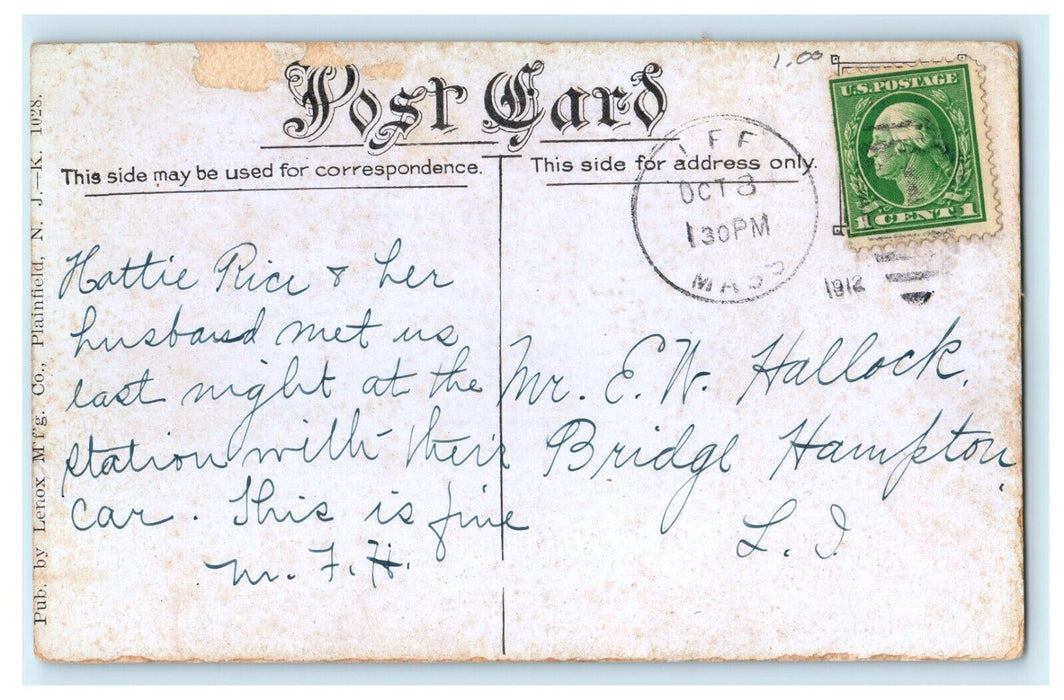 Post Card
This side may be used for correspondence.
This side for address only.
1.00
U.S. POSTAGE
1 CENT 1
OCT 8
1 30 PM
MASS
1912
Hattie Rice & her
husband met us
last night at the
station with their
car. This is fine
M. F. H.
Mr. E. W. Hallock.
Bridge Hampton,
L. I.
Pub. by Lenox Mf'g. Co., Plainfield, N. J.—K. 1028.